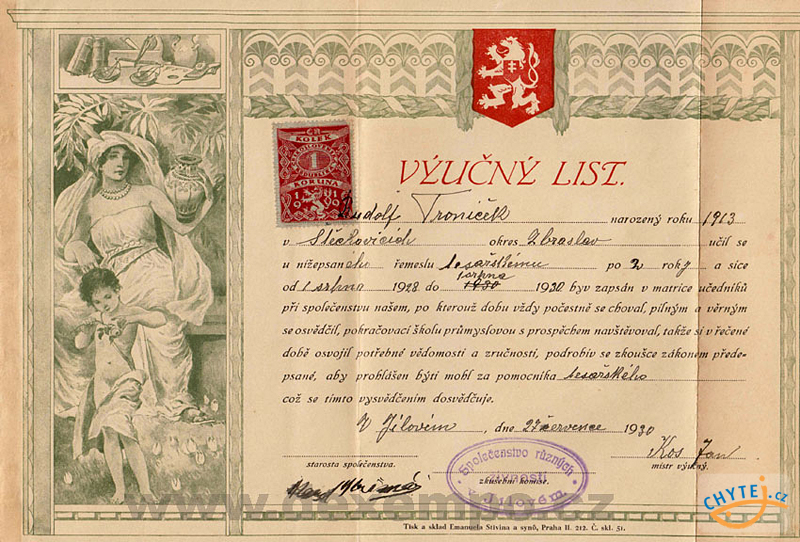 ČR
KOLEK
1
KORUNA
VÝUČNÝ LIST.
Rudolf Troníček narozený roku 1913
v Štěchovicích okres Zbraslav učil se
u nížepsaného řemeslu tesařskému po 2 roky a sice
srpna
od 1 srpna 1928 do 1930 1930 byv zapsán v matrice učedníků
při společenstvu našem, po kterouž dobu vždy počestně se choval, pilným a věrným
se osvědčil, pokračovací školu průmyslovou s prospěchem navštěvoval, takže si v řečené
době osvojil potřebné vědomosti a zručnosti, podrobiv se zkoušce zákonem přede-
psané, aby prohlášen býti mohl za pomocníka tesařského
což se tímto vysvědčením dosvědčuje.
V Jílovém, dne 27 července 1930
Kos Jan
starosta společenstva.
mistr výučný.
Společenstvo různých
živností
v Jílovém.
zkušební komise.
Tisk a sklad Emanuela Stivína a synů, Praha II. 212. Č. skl. 51.
CHYTEJ.cz